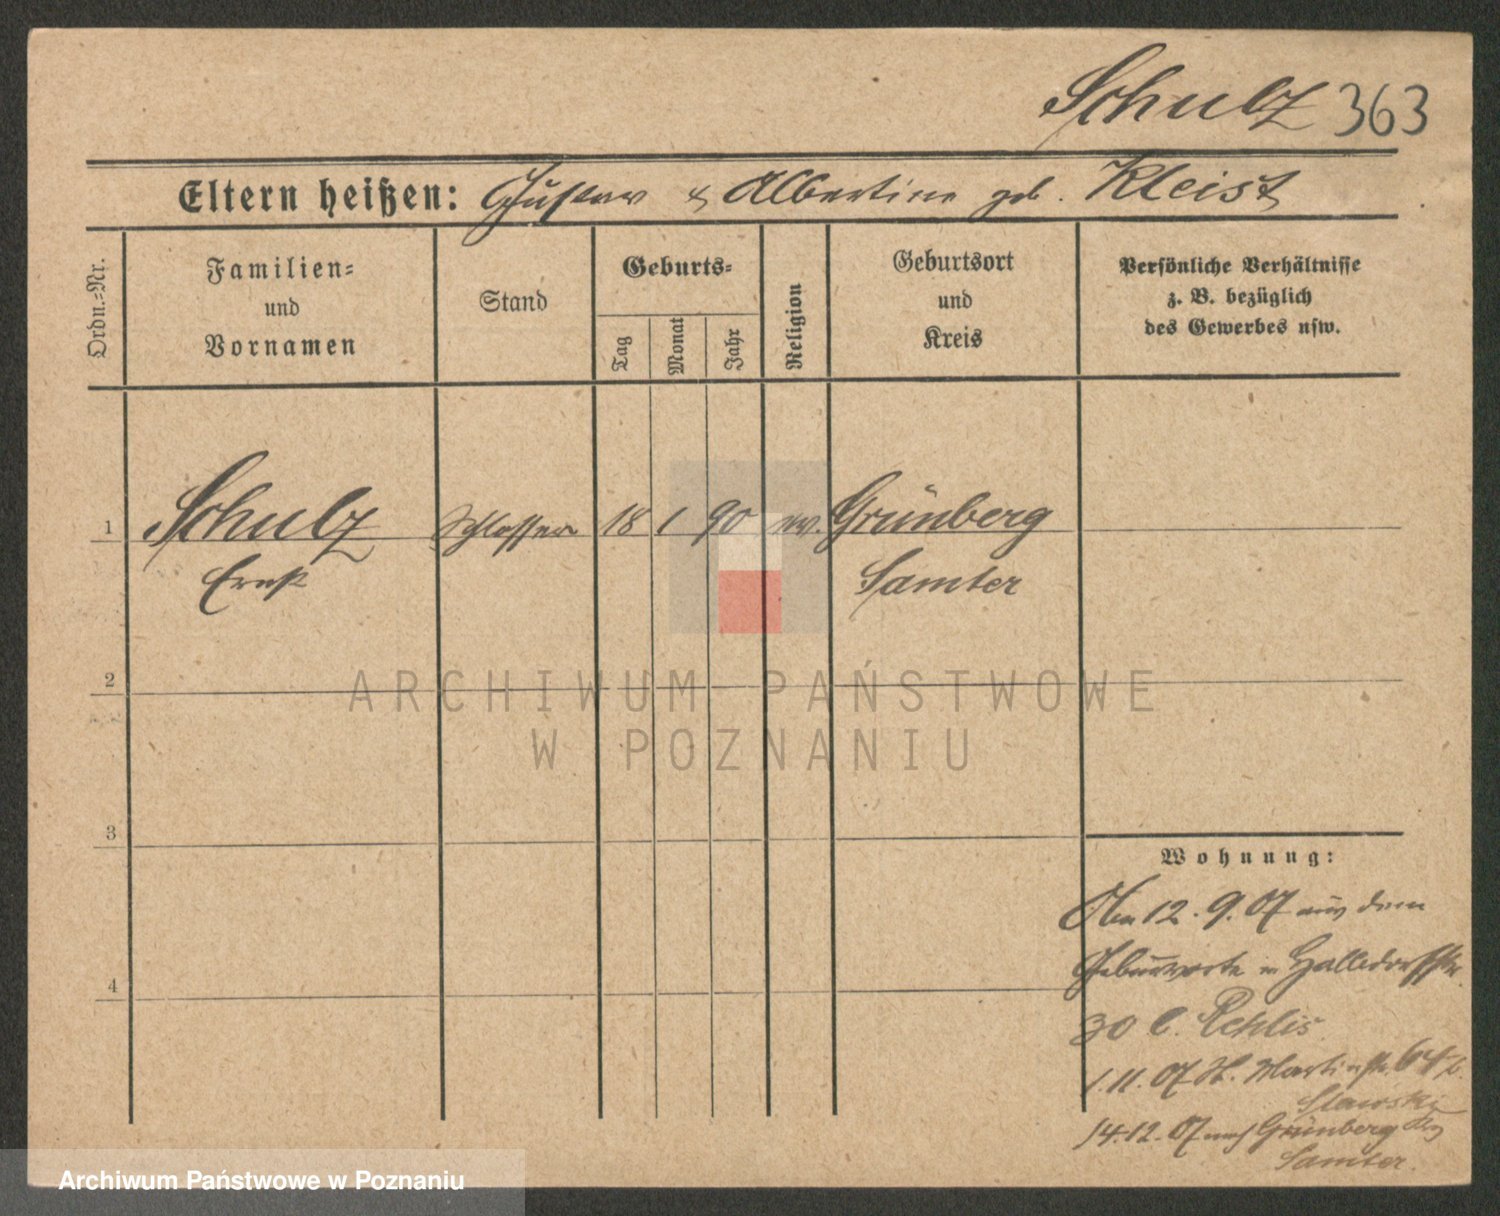 Schulz 363
Eltern heißen: Gustav & Albertine geb. Kleist
Ordn.=Nr.
Familien=
und
Vornamen
Stand
Geburts=
Tag
Monat
Jahr
Religion
Geburtsort
und
Kreis
Persönliche Verhältnisse
z. B. bezüglich
des Gewerbes usw.
1 Schulz Schlosser 18 1 90 ev. Grünberg
Ernst Samter
2
ARCHIWUM PAŃSTWOWE
W POZNANIU
3
Wohnung:
Am 12. 9. 07 aus dem
Geburtsorte n Halldorfstr.
4
30 b.
1. 11. 07 St. Martinstr. 64 b.
Slawski
14. 12. 07 nach Grünberg Krs
Samter.
Archiwum Państwowe w Poznaniu